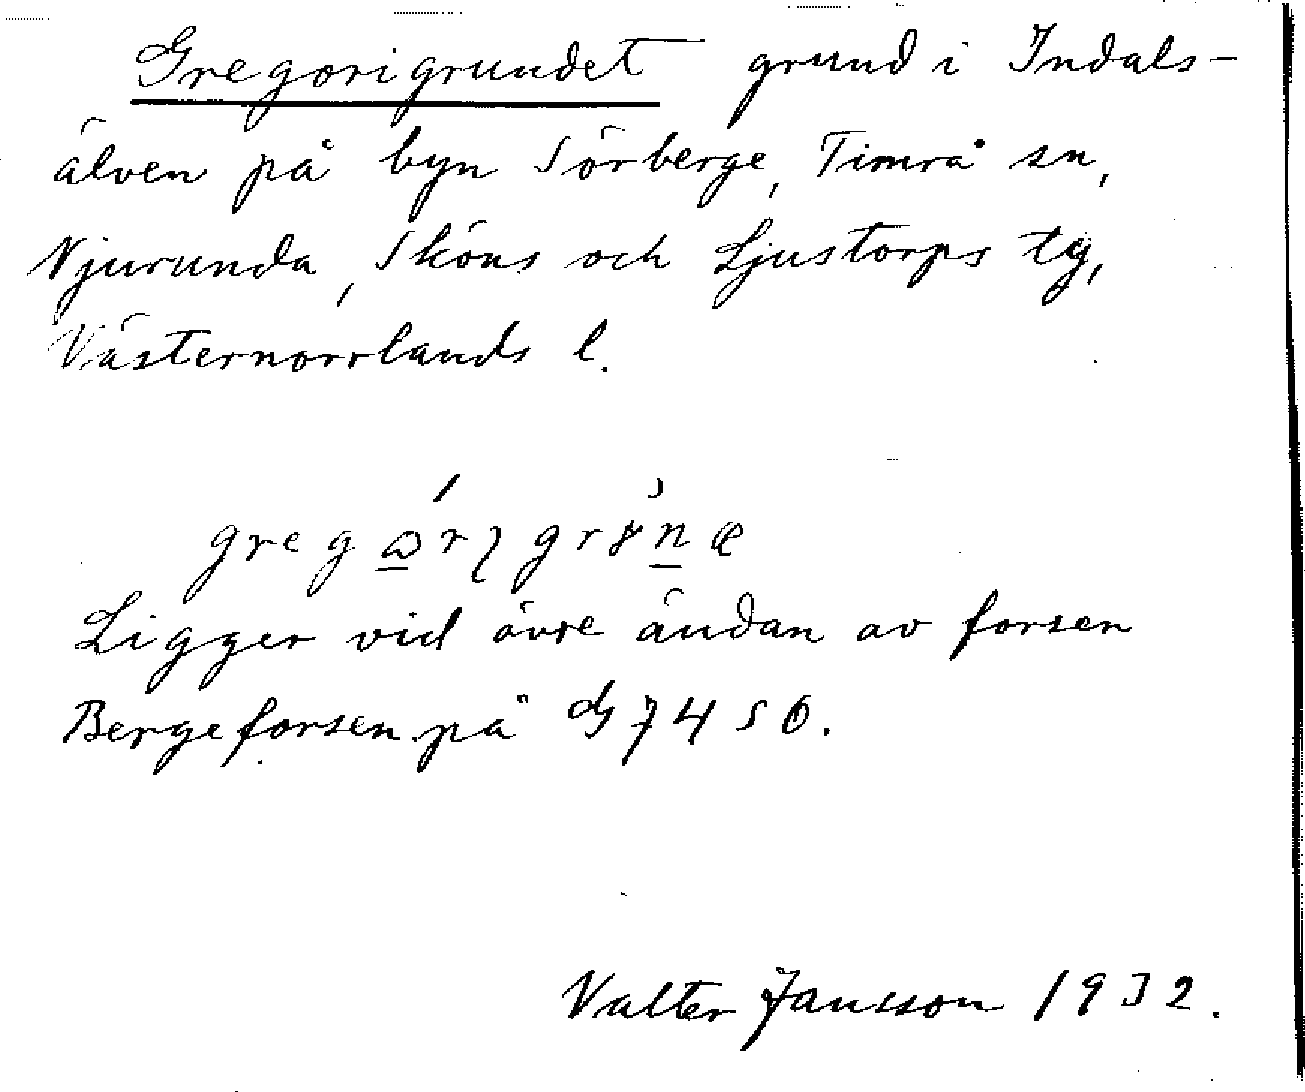 Gregorigrundet grund i Indals-
älven på byn Sörberge, Timrå sn,
Njurunda, Sköns och Ljustorps tg,
Västernorrlands l.
Ligger vid övre ändan av forsen
Bergeforsen på G 74 SO.
Valter Jansson 1932.